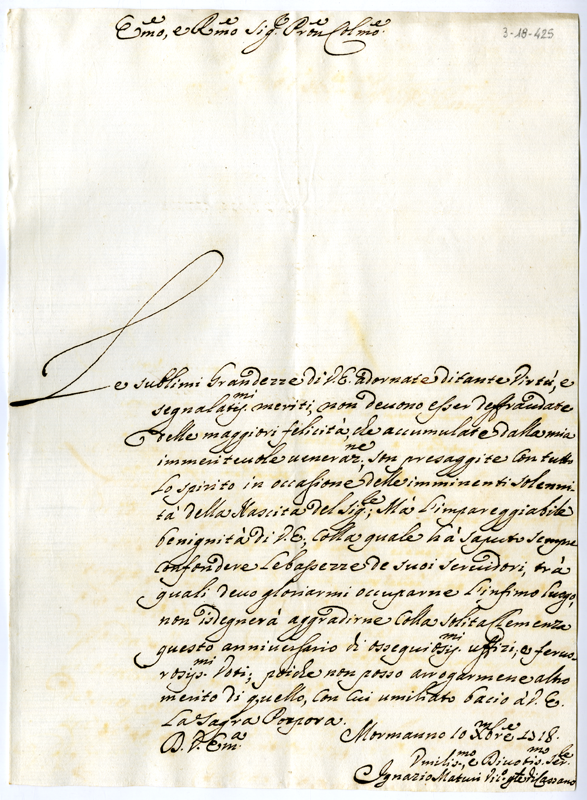 Em̃o, e Rm̃o Sig.re Prõn Colmõ.
3-18-425
Le sublimi Grandezze di V.E. adornate di tante Virtù, e
segnalatiss.mi meriti, non devono esser deffraudate
delle maggiori felicità, che accumulate dalla mia
immeritevole veneraz.ne, son presaggite con tutto
Lo spirito in occasione delle imminenti Solenni
tà della Nascita del Sig.re; Mà L'impareggiabile
benignità di V.E., Colla quale hà saputo sempre
confondere Le bassezze de suoi servidori, trà
quali devo gloriarmi occuparne L'infimo luogo,
non isdegnerà aggradirne colla solita Clemenza
questo anniversario di osseguiosiss.mi uffizi, e fervo-
rosiss.mi Voti; poiche non posso arrogarmene altro
merito di quello, con cui umiliato bacio à V.E.
La Sagra Porpora.
Mormanno 10 Xbre
D. V. Em.a
Umilis.mo, e Divotis.mo Ser.
Ignazio Maturi di Cassano